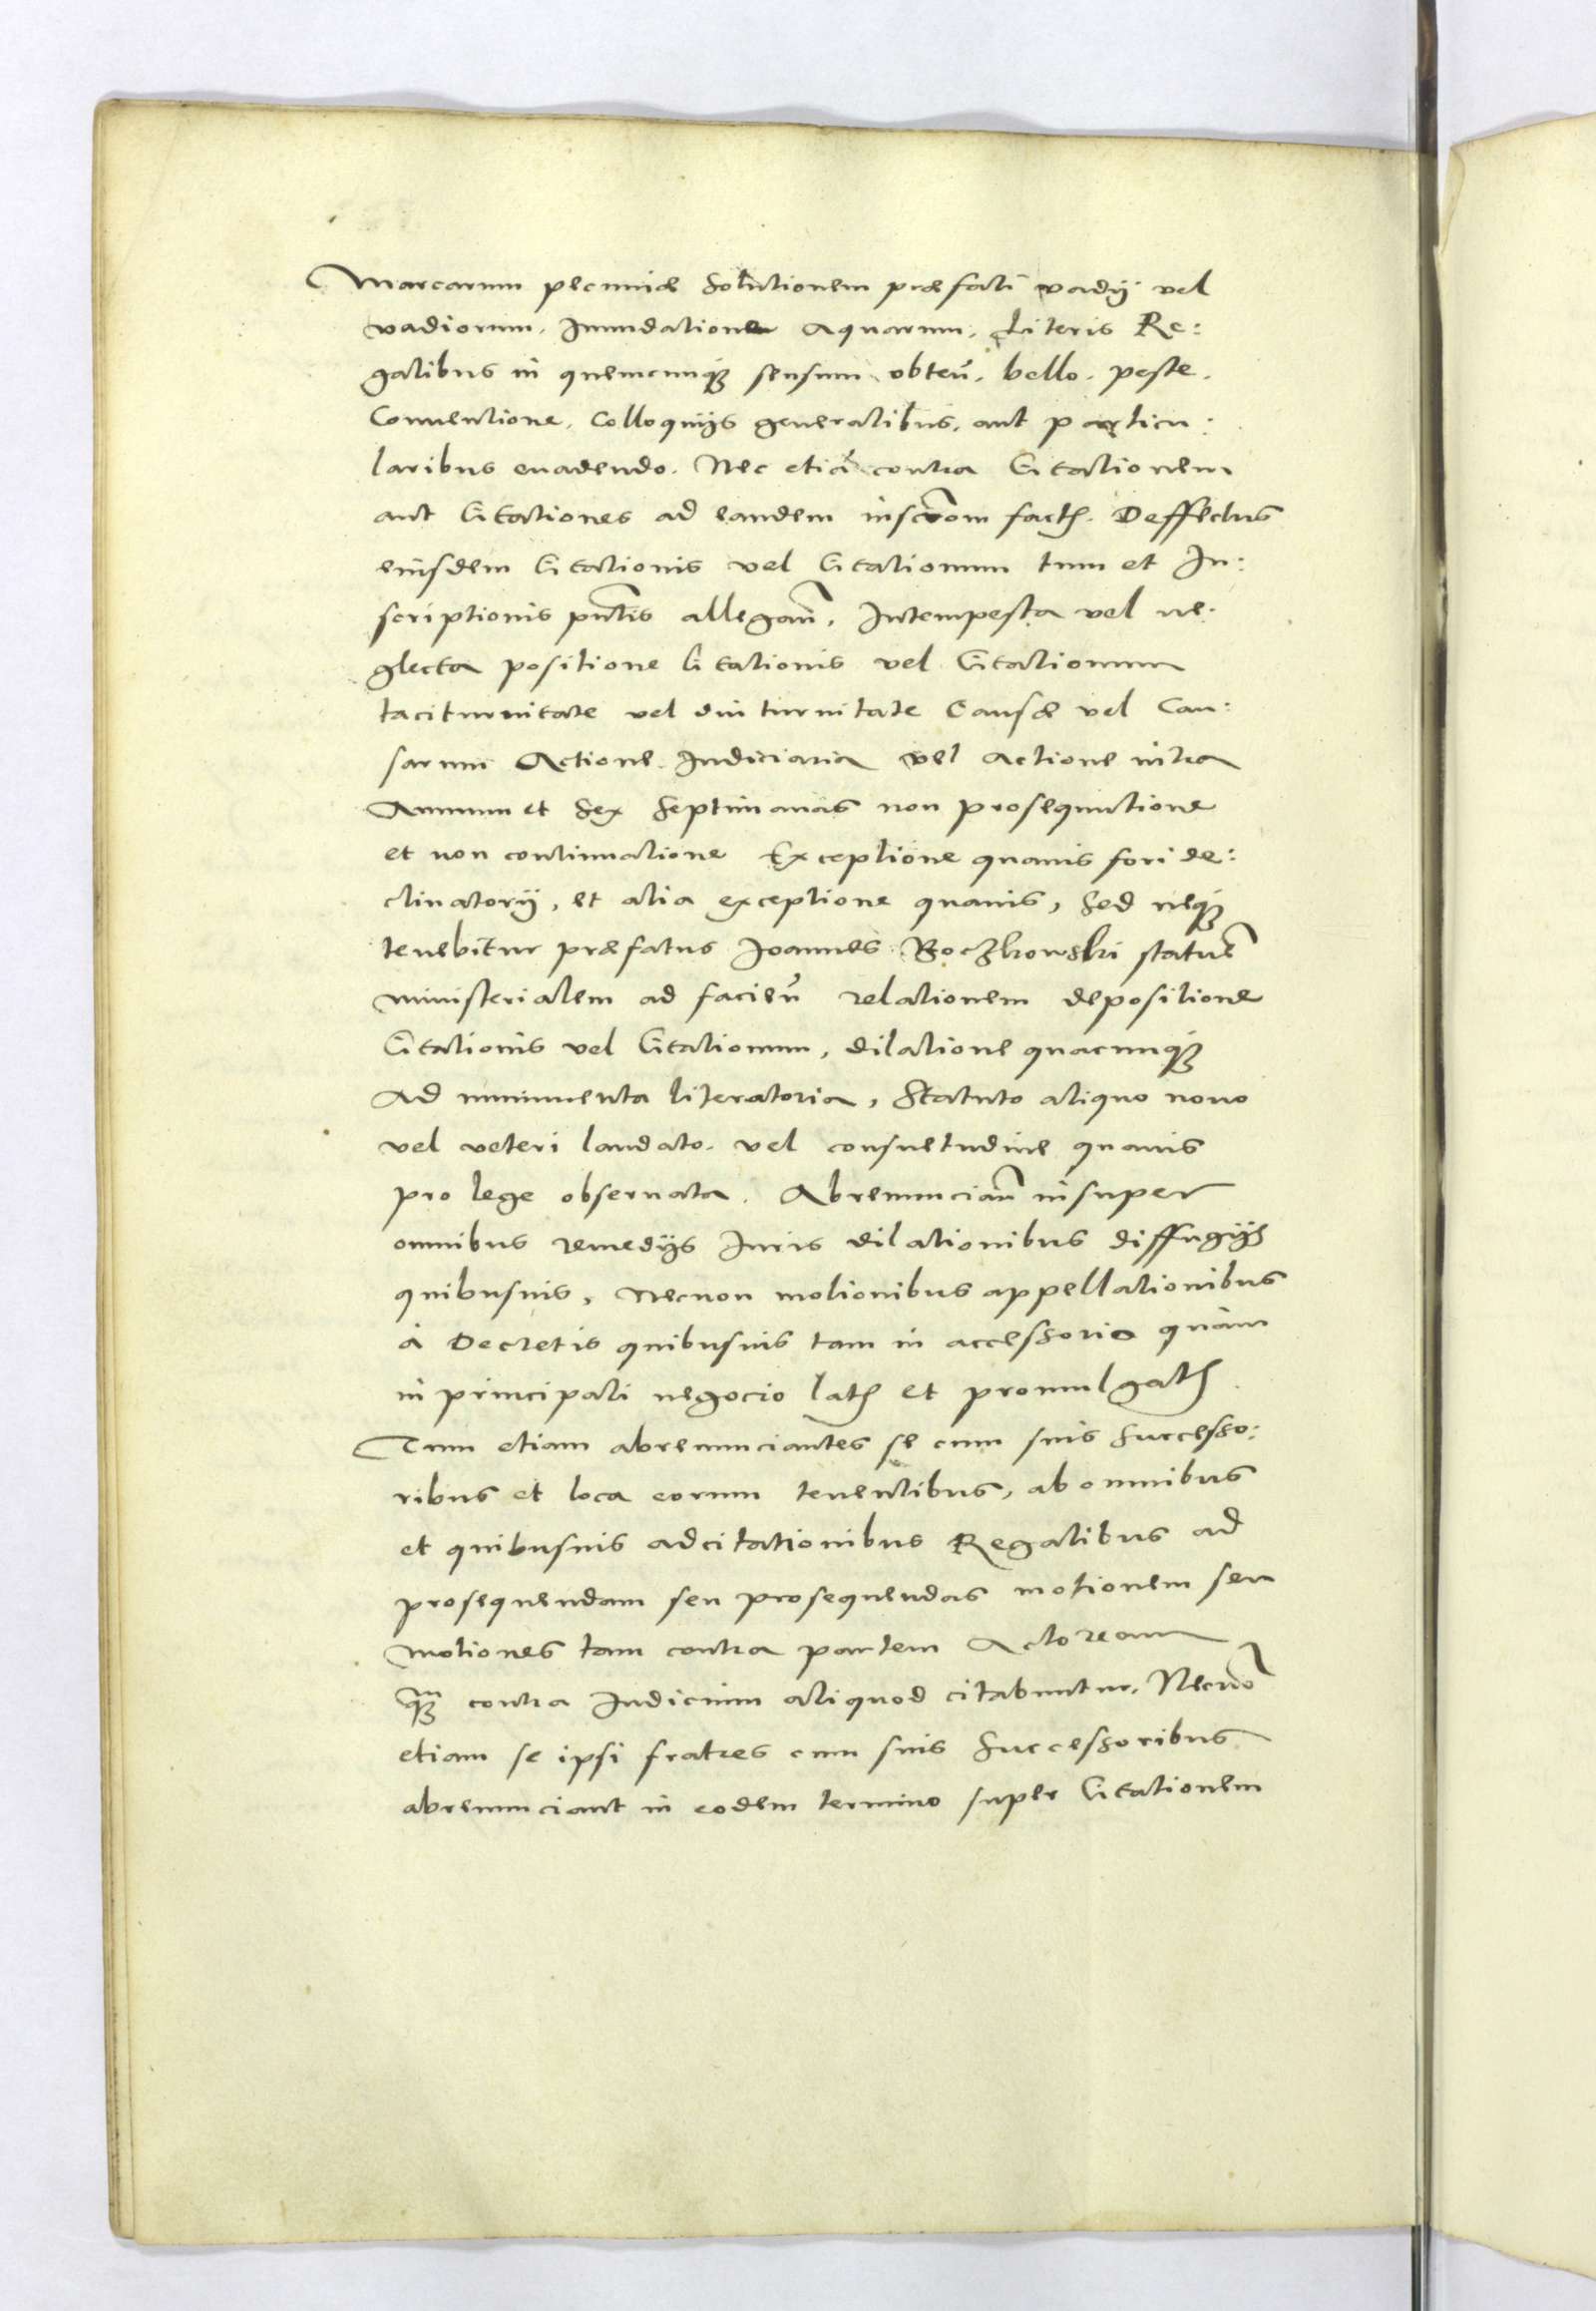 Marcarum pecuniæ solutionem præfati vadij vel
vadiorum. Inundatione aquarum. Literis Re:
galibus in quemcunq3 sensum obten̄. bello. peste.
Conventione. Colloquijs generalibus. aut particu:
laribus euadendo. Nec etiā contra Citationem
aut Citationes ad eandem inscr̄om fact. Deffectus
eiusdem Citationis vel Citationum tum et In:
scriptionis pn̄tis allegan̄. Intempesta vel ne.
glecta positione Citationis vel Citationum
taciturnitate vel diuturnitate Causæ vel Cau:
sarum Actione Iudiciaria vel actione intra
Annum et sex septimanas non prosequutione
et non continuatione Exceptione quauis fori de:
clinatorij, et alia exceptione quauis, sed neq3
tenebitur præfatus Joannes Boczkowski statuē
ministerialem ad facien̄ relationem depositione
Citationis vel Citationum, dilatione quacunq3
Ad munimenta literatoria, Statuto aliquo nouo
vel veteri laudato. vel consuetudine quauis
pro lege obseruata. Abrenuncian̄ insuper
omnibus remedijs Iuris dilationibus diffugijs
quibusuis, necnon motionibus appellationibus
à Decretis quibusuis tam in accessorio quàm
in principali negocio lat et promulgat
Tum etiam abrenunciantes se cum suis successo:
ribus et loca eorum tenentibus, ab omnibus
et quibusuis adcitationibus Regalibus ad
prosequendam seu prosequendas motionem seu
motiones tam contra partem Actoream
q̄3 contra Iudicium aliquod citabuntur. Necnō
etiam se ipsi fratres cum suis successoribus
abrenunciant in eodem termino super Citationem